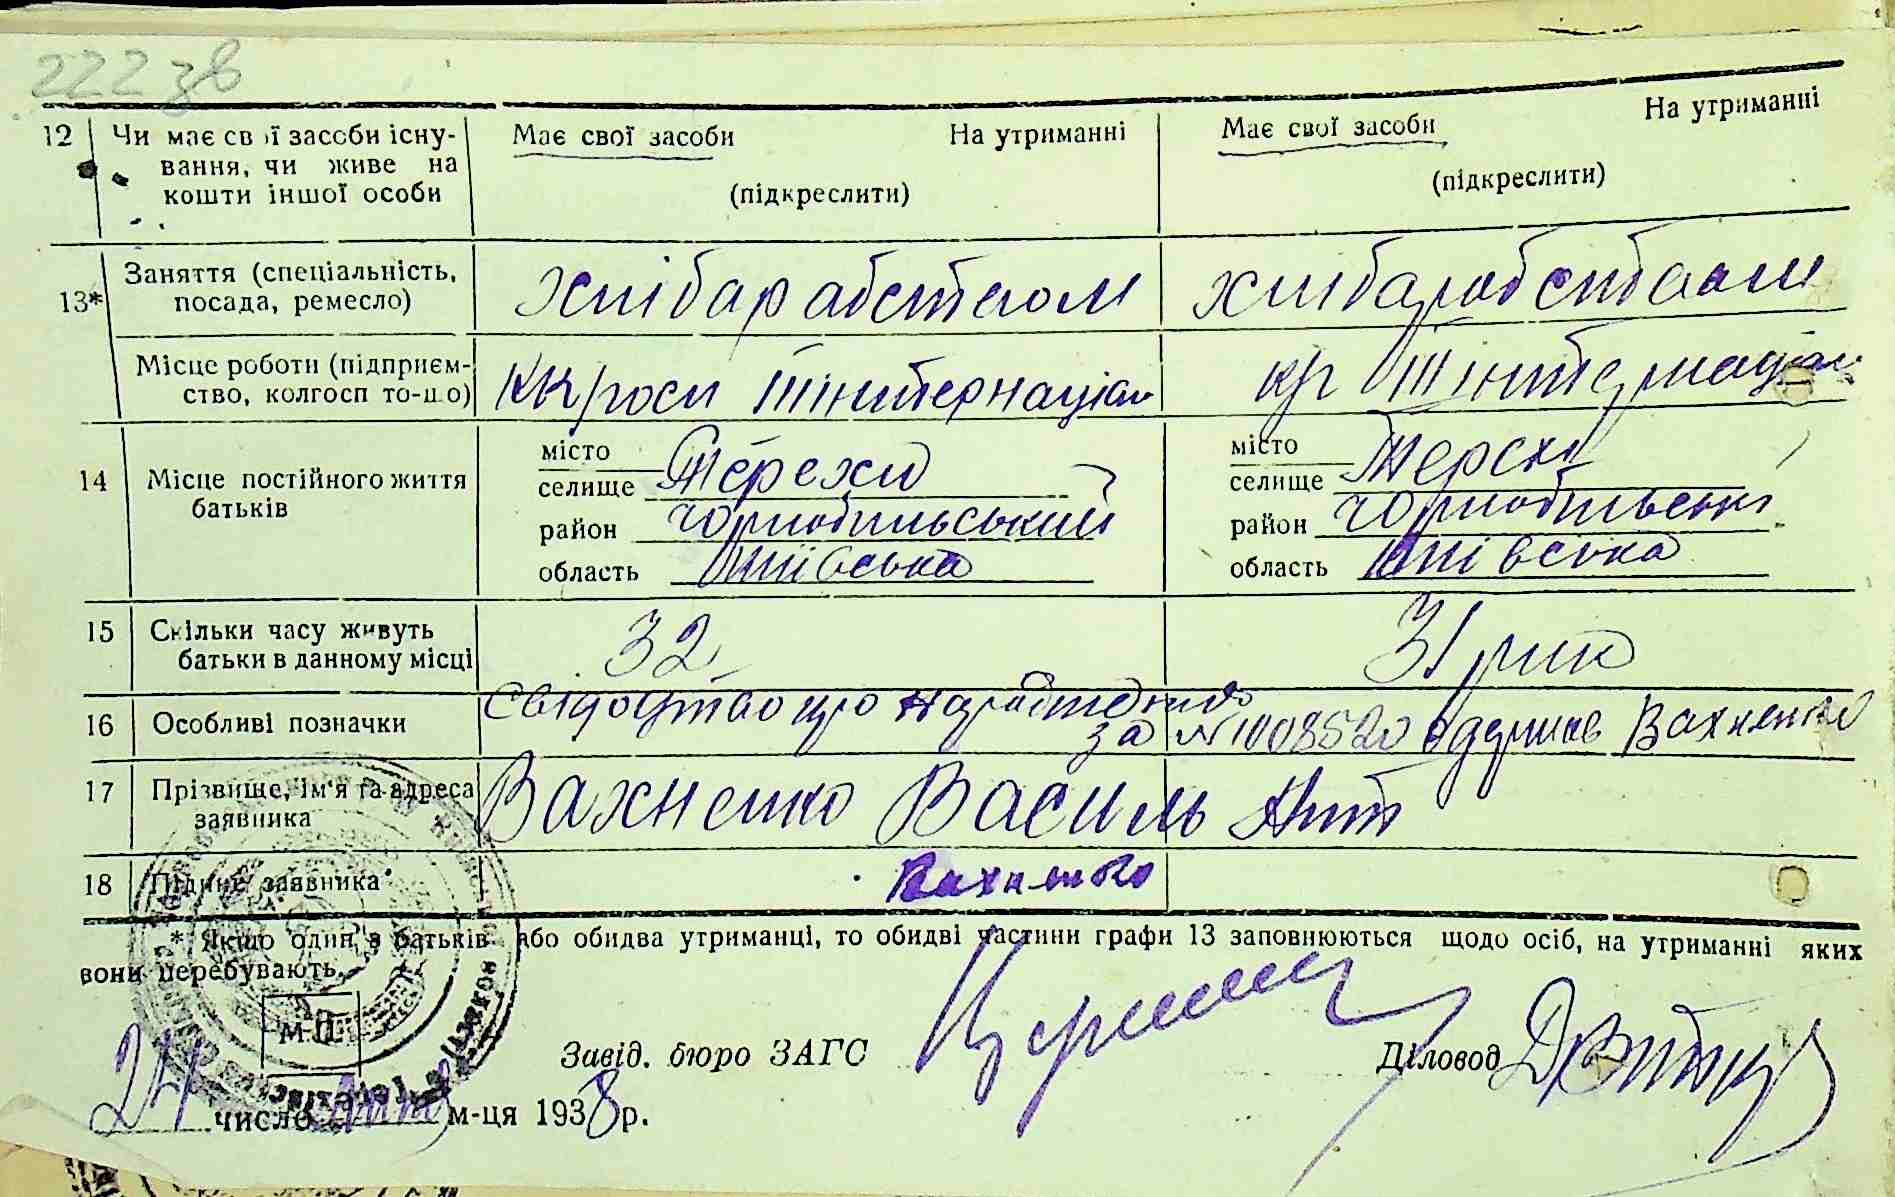 222 зв
12 Чи має свої засоби існу- Має свої засоби На утриманні Має свої засоби На утриманні
вання, чи живе на
кошти іншої особи (підкреслити) (підкреслити)
13* Заняття (спеціальність,
посада, ремесло) хлібарабством хлібарабством
Місце роботи (підприєм-
ство, колгосп то-що) інтернаціонал кр ІІІ інтернаціонал
14 Місце постійного життя
батьків
місто
селище Терехи
район Чорнобильський
область Київська
місто
селище Терехи
район Чорнобильськ
область Київська
15 Скільки часу живуть
батьки в данному місці 32 31 рик
16 Особливі позначки Свідоцтво про народження
за №1008520 одержав Вахненко
17 Прізвище, ім'я та адреса
заявника Вахненко Василь
18 Підпис заявника Вахненко
* Якщо один з батьків або обидва утриманці, то обидві частини графи 13 заповнюються щодо осіб, на утриманні яких
вони перебувають.
М.П.
Завід. бюро ЗАГС Діловод
24 число м-ця 1938 р.